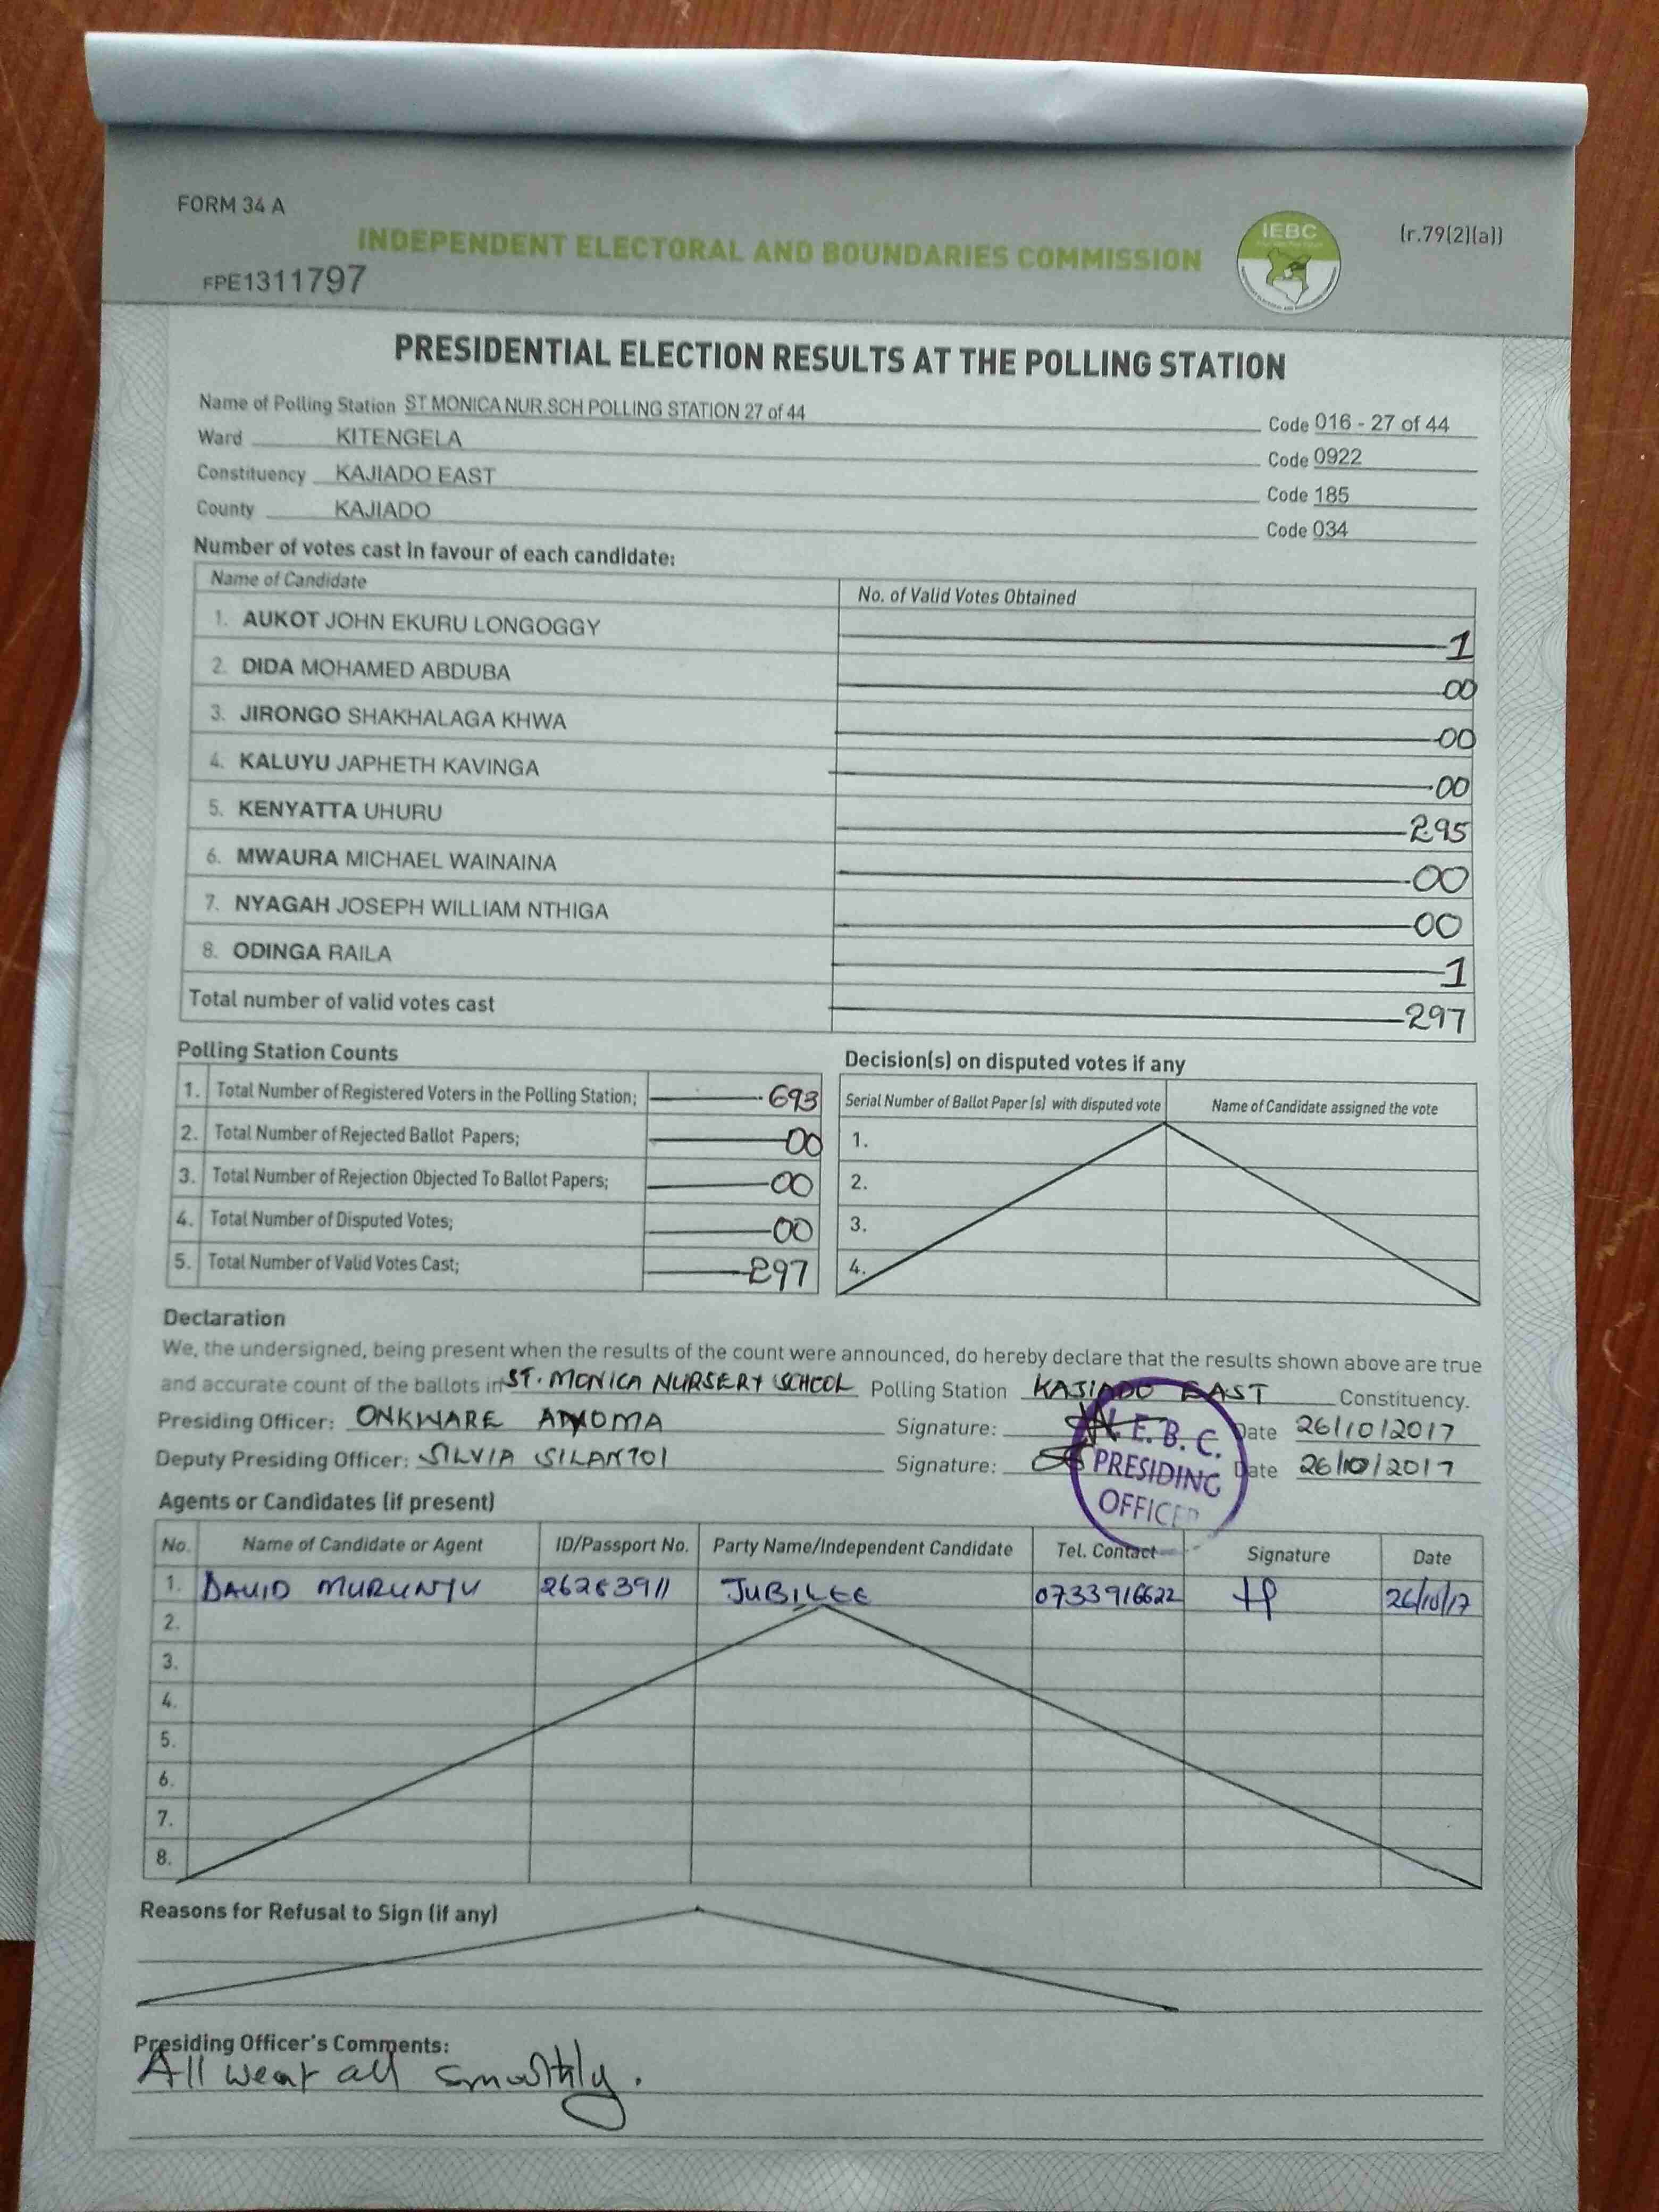 FORM 34 A
INDEPENDENT ELECTORAL AND BOUNDARIES COMMISSION
IEBC
(r.79(2)(a))
FPE1311797
PRESIDENTIAL ELECTION RESULTS AT THE POLLING STATION
Name of Polling Station ST MONICA NUR.SCH POLLING STATION 27 of 44 Code 016 - 27 of 44
Ward KITENGELA Code 0922
Constituency KAJIADO EAST Code 185
County KAJIADO Code 034
Number of votes cast in favour of each candidate:
Name of Candidate No. of Valid Votes Obtained
1. AUKOT JOHN EKURU LONGOGGY 1
2. DIDA MOHAMED ABDUBA 00
3. JIRONGO SHAKHALAGA KHWA 00
4. KALUYU JAPHETH KAVINGA 00
5. KENYATTA UHURU 295
6. MWAURA MICHAEL WAINAINA 00
7. NYAGAH JOSEPH WILLIAM NTHIGA 00
8. ODINGA RAILA 1
Total number of valid votes cast 297
Polling Station Counts
1. Total Number of Registered Voters in the Polling Station; 693
2. Total Number of Rejected Ballot Papers; 00
3. Total Number of Rejection Objected To Ballot Papers; 00
4. Total Number of Disputed Votes; 00
5. Total Number of Valid Votes Cast; 297
Decision(s) on disputed votes if any
Serial Number of Ballot Paper (s) with disputed vote Name of Candidate assigned the vote
1.
2.
3.
4.
Declaration
We, the undersigned, being present when the results of the count were announced, do hereby declare that the results shown above are true
and accurate count of the ballots in ST. MONICA NURSERY SCHOOL Polling Station KAJIADO EAST Constituency.
Presiding Officer: ONKWARE Signature: Date 26/10/2017
Deputy Presiding Officer: SILVIA SILANTOI Signature: Date 26/10/2017
I.E.B.C.
PRESIDING
OFFICER
Agents or Candidates (if present)
No. Name of Candidate or Agent ID/Passport No. Party Name/Independent Candidate Tel. Contact Signature Date
1. DAVID MURUNYU JUBILEE 0733916622 26/10/17
2.
3.
4.
5.
6.
7.
8.
Reasons for Refusal to Sign (if any)
Presiding Officer's Comments:
All went all smoothly.